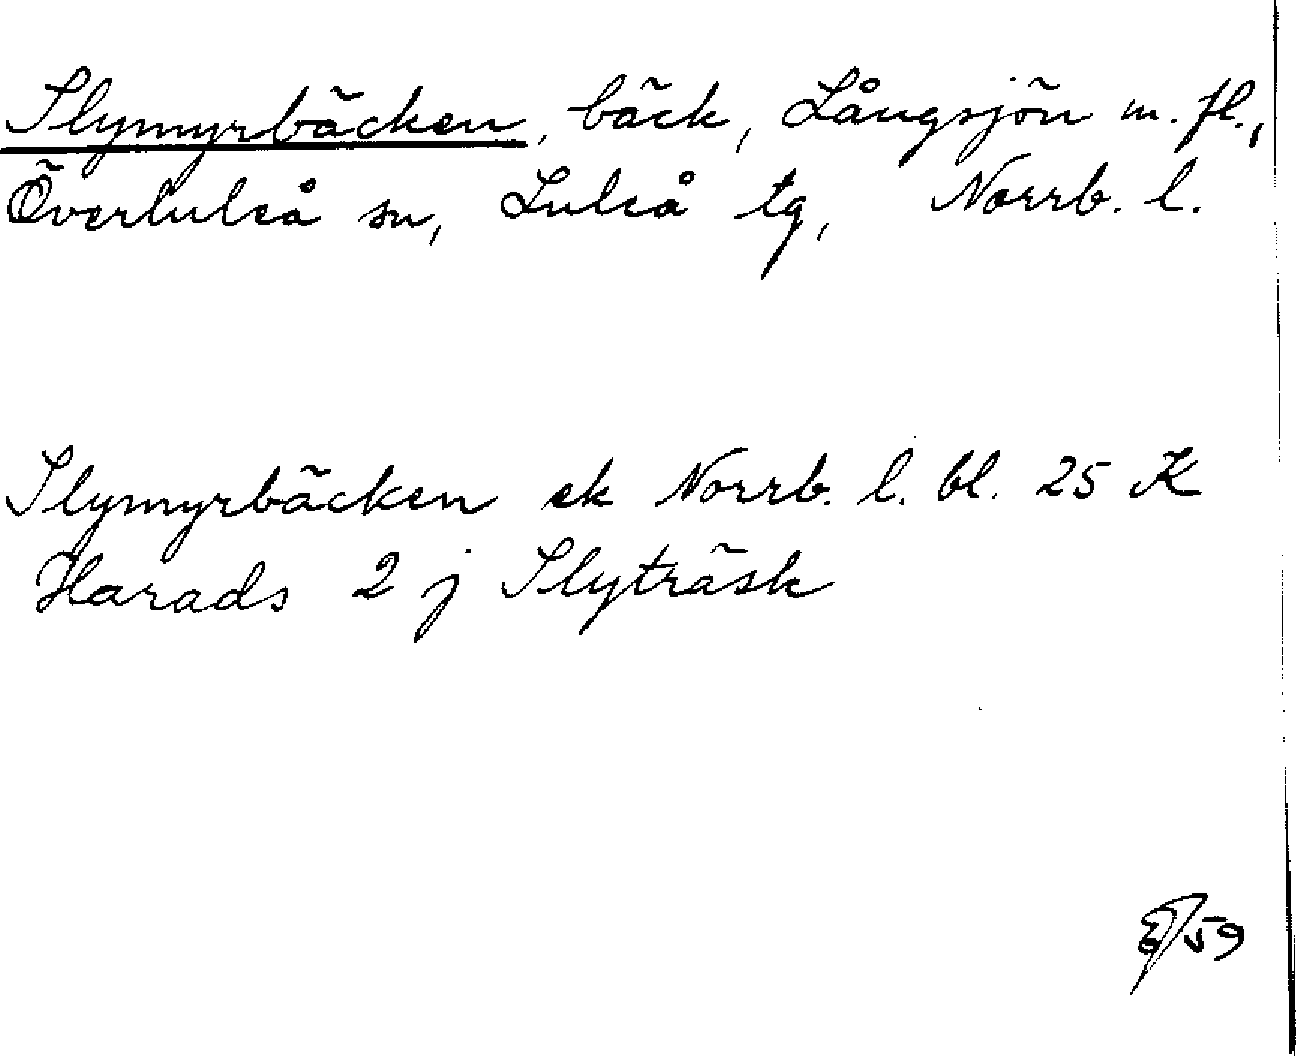 Slymyrbäcken, bäck, Långsjön m. fl.,
Överluleå sn, Luleå tg, Norrb. l.
Slymyrbäcken ek Norrb. l. bl. 25 K
Harads 2 j Slyträsk
59